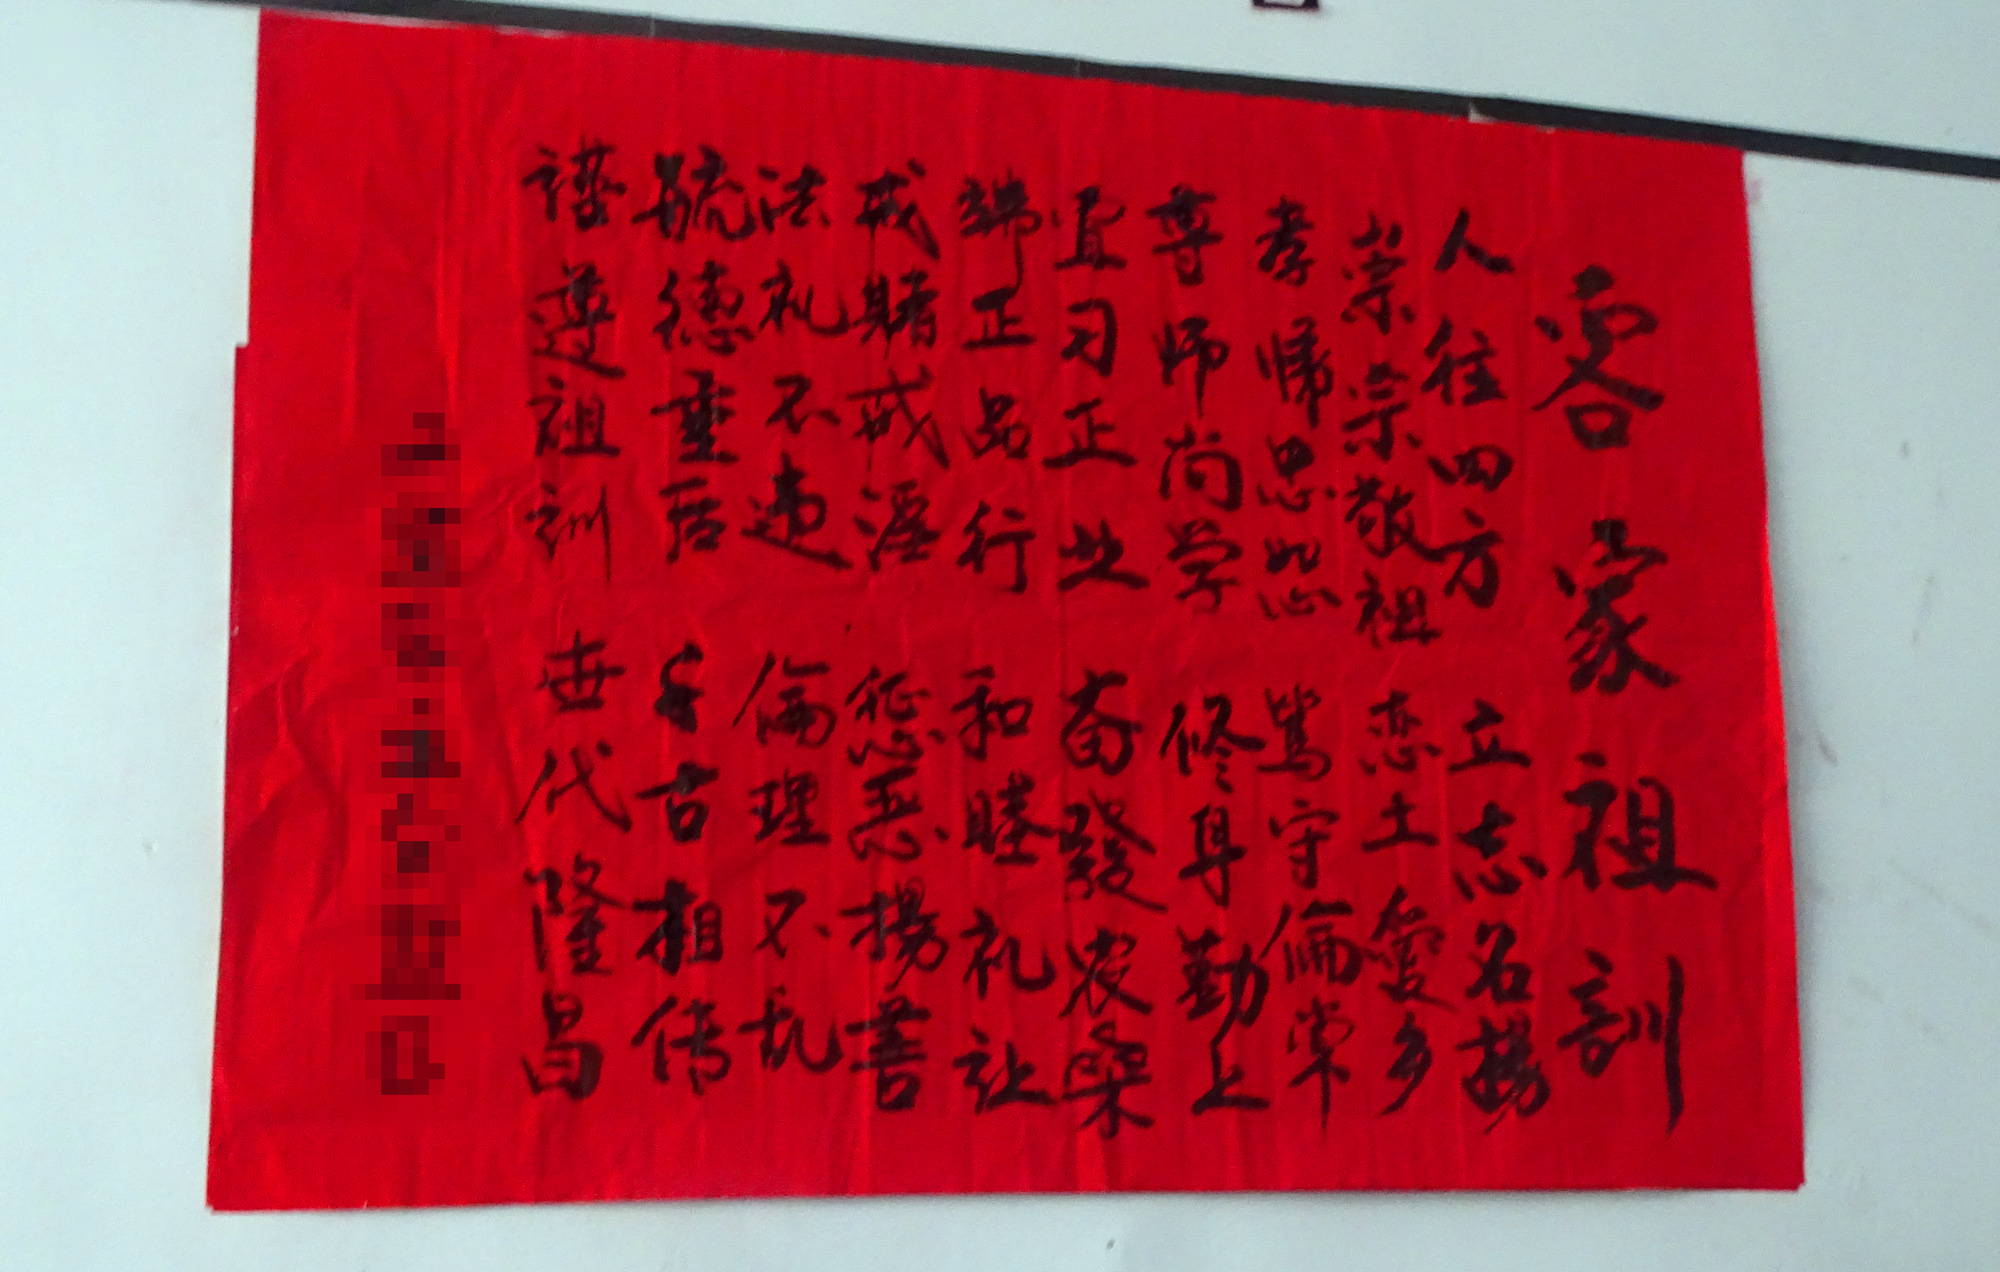 客家祖訓
人往四方 立志名揚
崇宗敬祖 恋土愛乡
孝悌忠 篤守倫常
尊师尚学 修身勤上
宜习正业 奋發农桑
端正品行 和睦礼让
戒賭戒淫 惩恶揚善
法礼不违 倫理不乱
德重 千古相传
谨遵祖训 世代隆昌